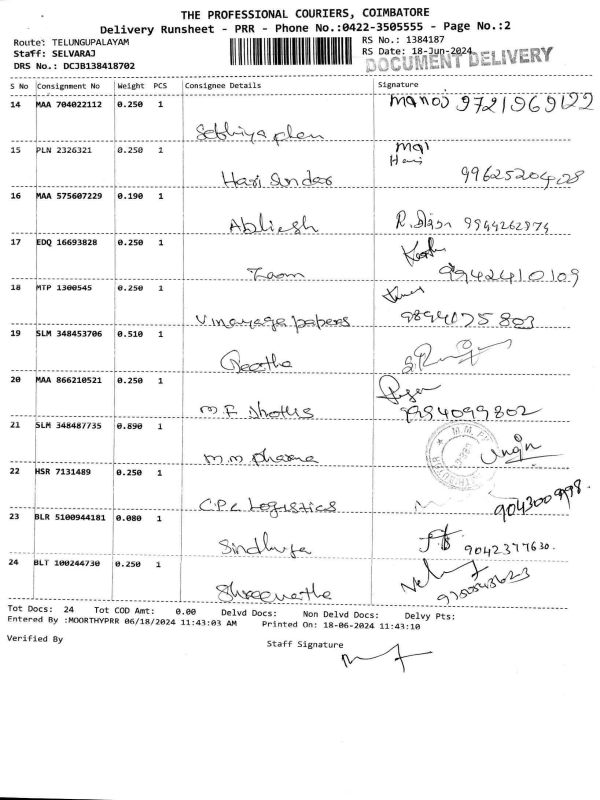 THE PROFESSIONAL COURIERS, COIMBATORE
Delivery Runsheet - PRR - Phone No.:0422-3505555 - Page No.:2
Route: TELUNGUPALAYAM
Staff: SELVARAJ
DRS No.: DCJB138418702
RS No.: 1384187
RS Date: 18-Jun-2024
DOCUMENT DELIVERY
S No Consignment No Weight PCS Consignee Details Signature
14 MAA 704022112 0.250 1 manoj 9721969122
15 PLN 2326321 0.250 1 Hari
Hari Sundar 9962520428
16 MAA 575607229 0.190 1
Abliesh 9944262874
17 EDQ 16693828 0.250 1
9942410109
18 MTP 1300545 0.250 1
Vinayaga papers 9894075803
19 SLM 348453706 0.510 1
Geetha
20 MAA 866210521 0.250 1
M.F 9954099802
21 SLM 348487735 0.890 1
M.M pharma
22 HSR 7131489 0.250 1
C.P.C Logistics 9043009998.
23 BLR 5100944181 0.080 1
Sindhuja 9042377630.
24 BLT 100244730 0.250 1
Tot Docs: 24 Tot COD Amt: 0.00 Delvd Docs: Non Delvd Docs: Delvy Pts:
Entered By :MOORTHYPRR 06/18/2024 11:43:03 AM Printed On: 18-06-2024 11:43:10
Verified By Staff Signature